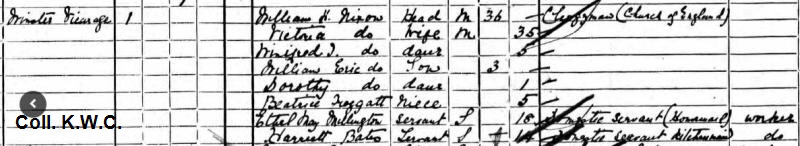 Minster Vicarage 1 William H. Nixon Head M 36 Clergyman (Church of England)
Victoria do Wife M 35
Winifred J. do daur 5
William Eric do Son 3
Dorothy do daur 1
Beatrice Froggatt Niece 5
Ethel May Millington Servant S 18 Domestic Servant (Housemaid) worker
Harriett Bates Servant S Domestic Servant Kitchenmaid do
Coll. K.W.C.